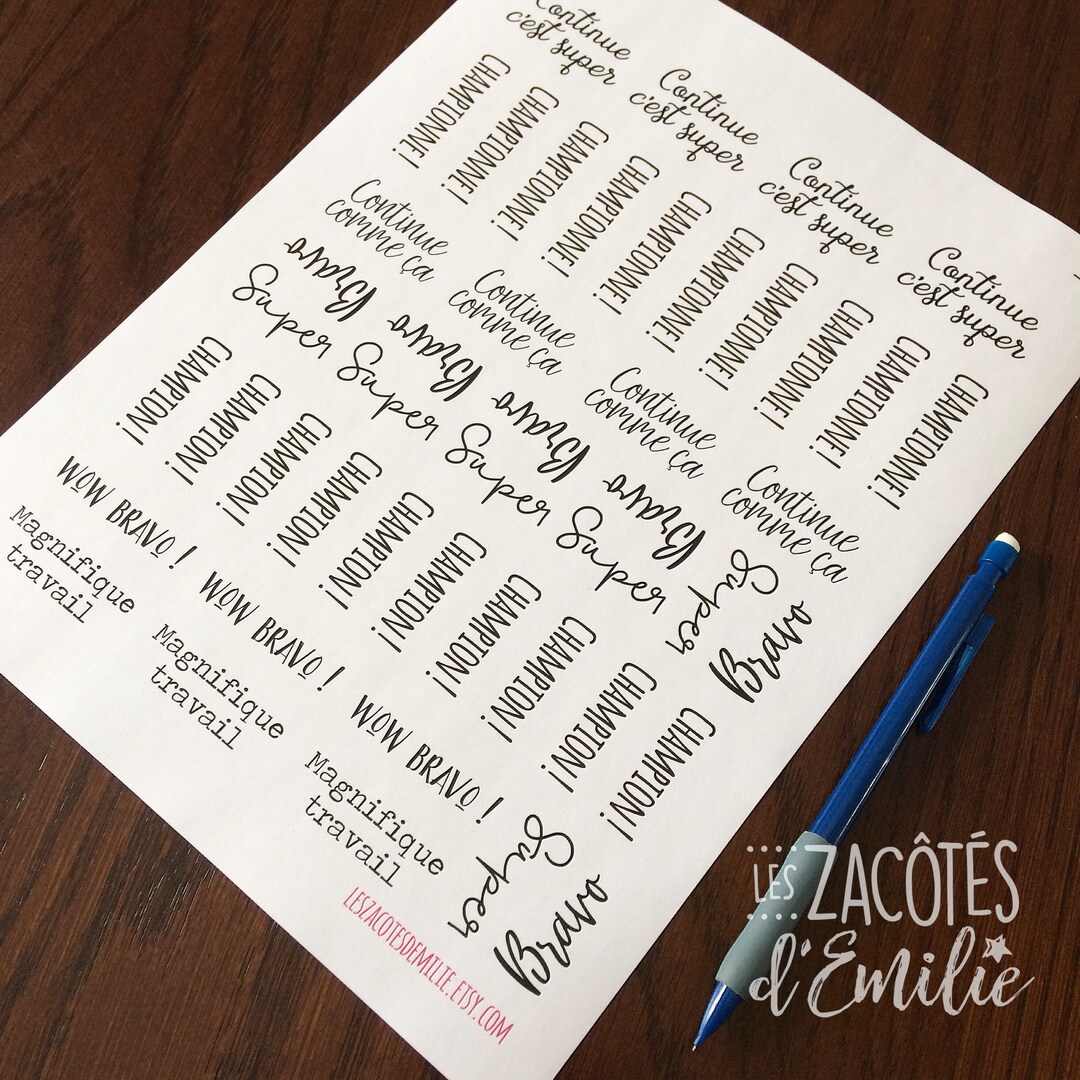 Continue
c'est super
Continue
c'est super
Continue
c'est super
Continue
c'est super
CHAMPIONNE!
CHAMPIONNE!
CHAMPIONNE!
CHAMPIONNE!
CHAMPIONNE!
CHAMPIONNE!
CHAMPIONNE!
CHAMPIONNE!
CHAMPIONNE!
CHAMPIONNE!
Continue
comme ça
Continue
comme ça
Continue
comme ça
Continue
comme ça
Bravo
Bravo
Bravo
Bravo
Super
Super
Super
Super
Super
Bravo
CHAMPION!
CHAMPION!
CHAMPION!
CHAMPION!
CHAMPION!
CHAMPION!
CHAMPION!
CHAMPION!
CHAMPION!
CHAMPION!
WOW BRAVO !
WOW BRAVO !
WOW BRAVO !
Magnifique
travail
Magnifique
travail
Magnifique
travail
Super
Bravo
LESZACOTESDEMILIE.ETSY.COM
LES ZACÔTÉS
d'Emilie